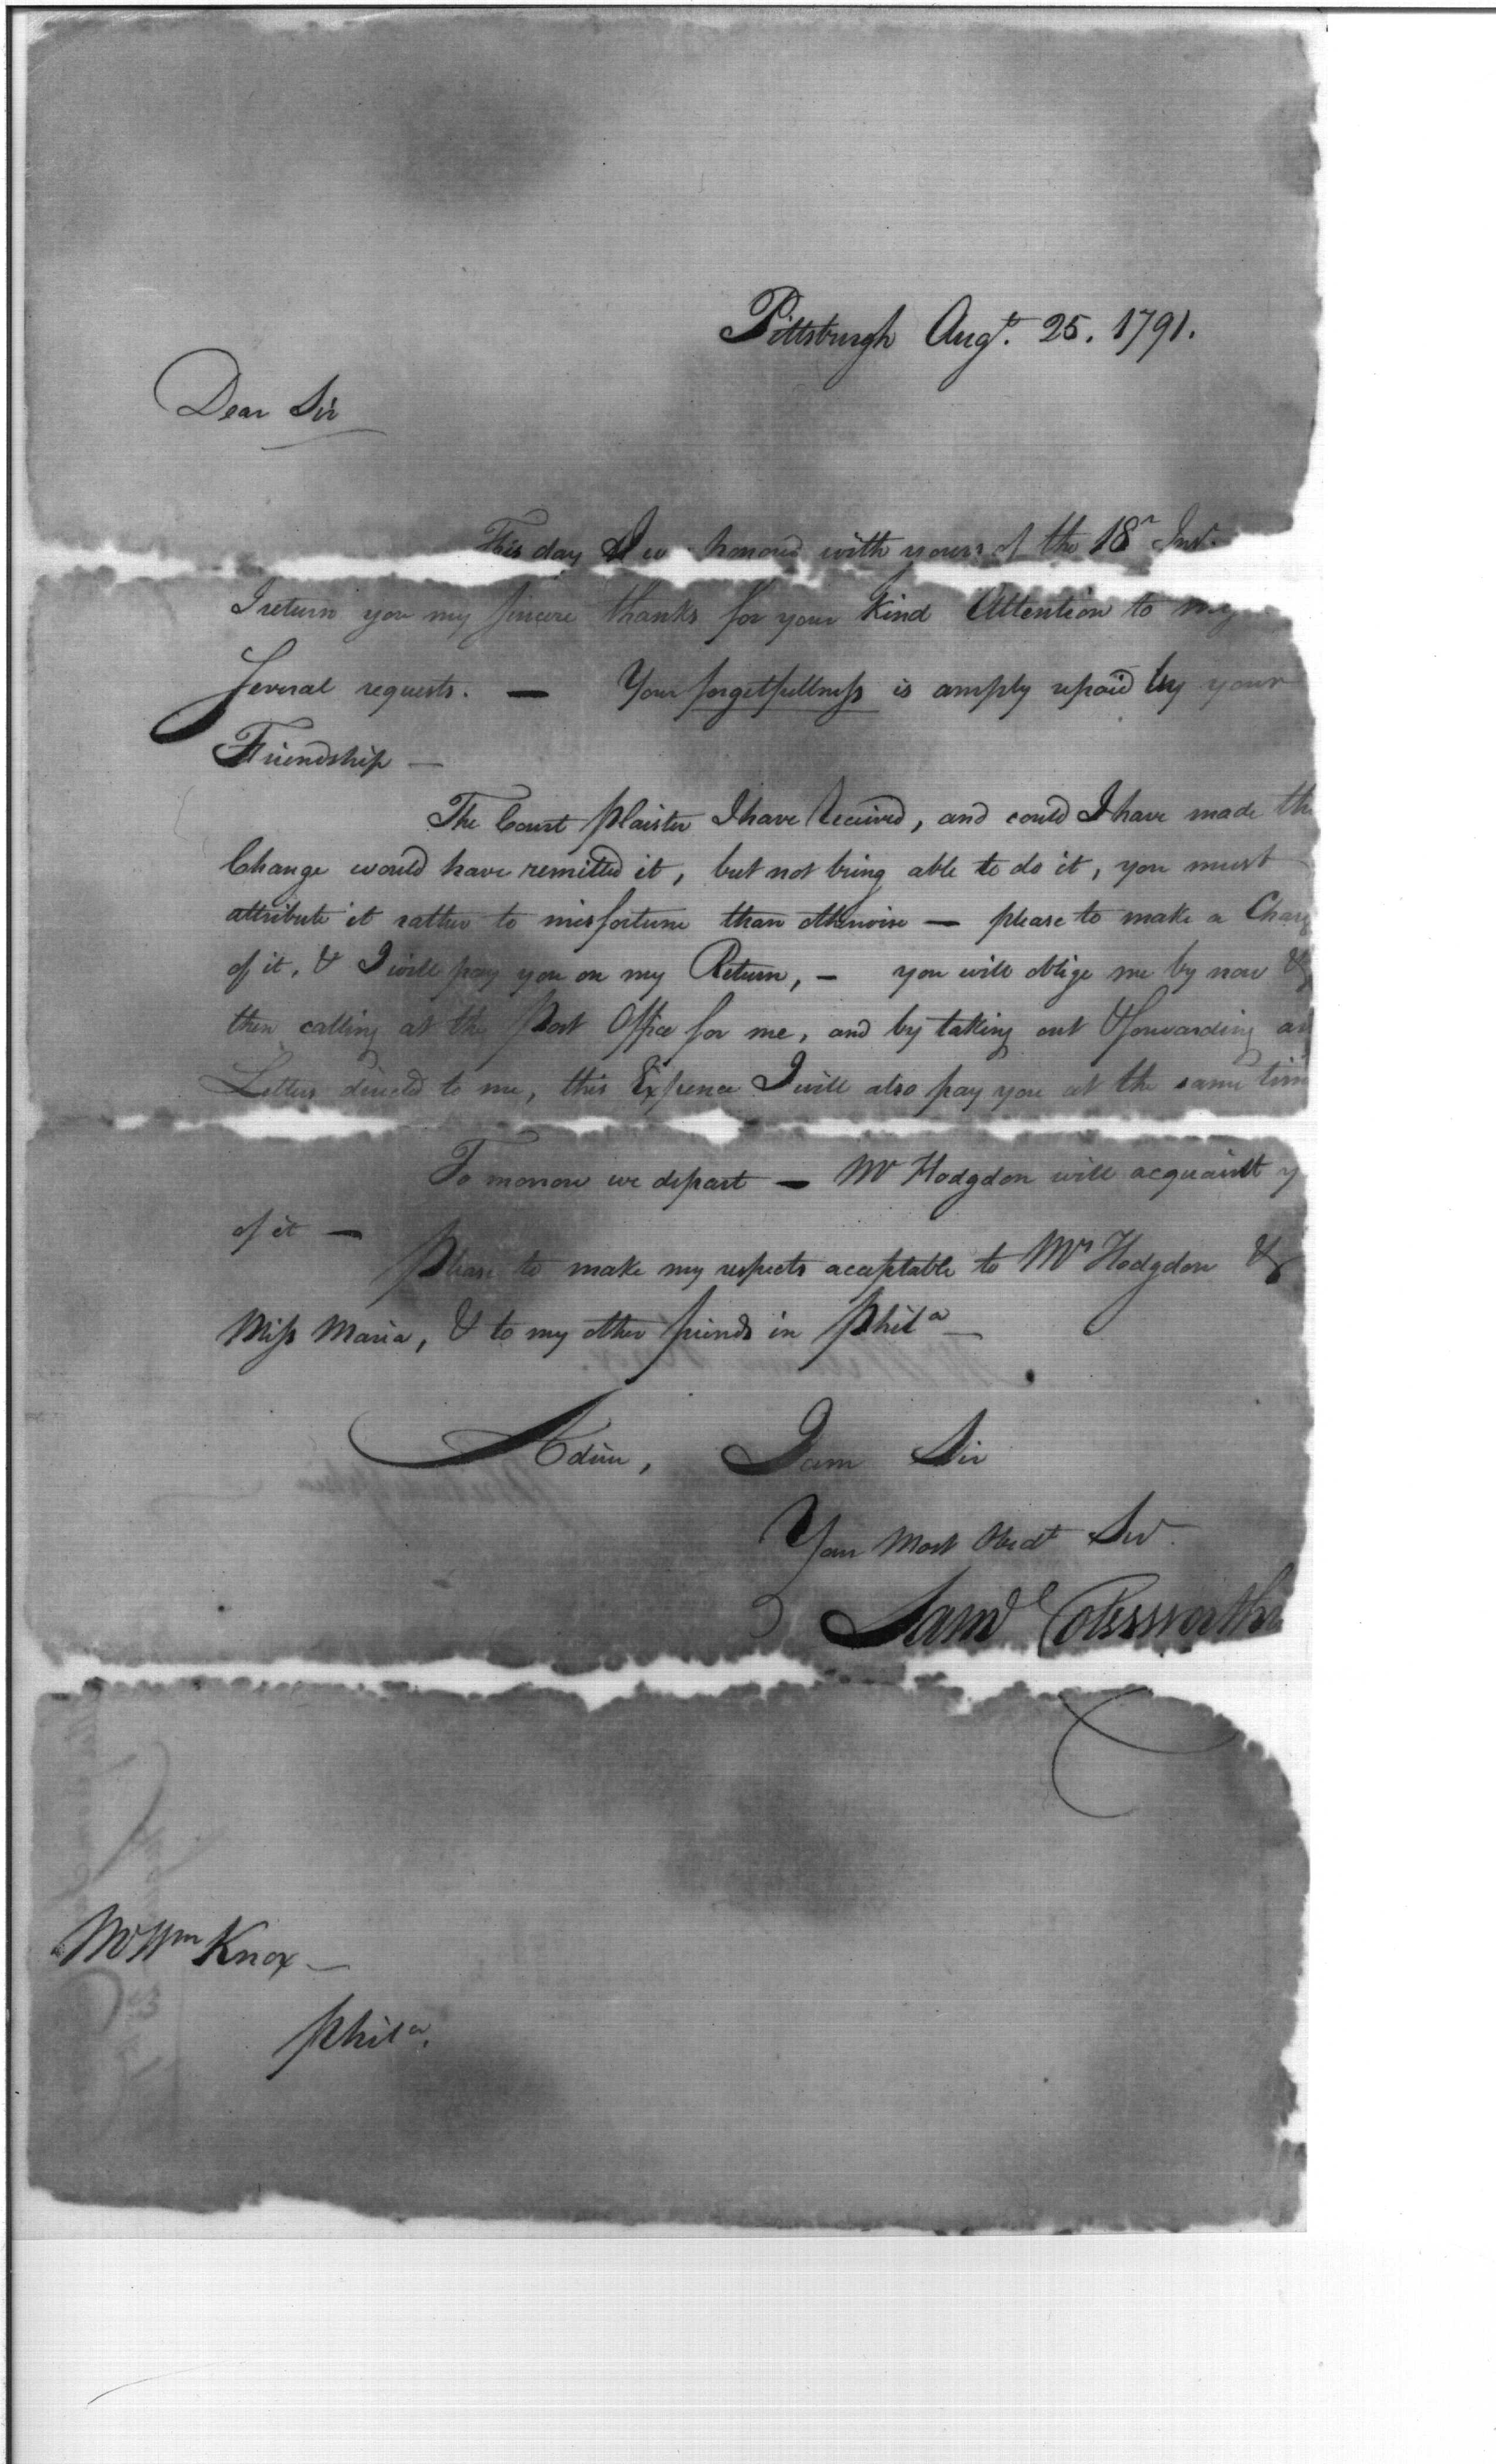 Pittsburgh Augt. 25. 1791.
Dear Sir
This day I honored with yours of the 18th Inst.
I return you my sincere thanks for your kind Attention to my
several requests. — Your forgetfullness is amply repaid by your
Friendship —
The Court plaister I have received, and could I have made the
Change would have remitted it, but not being able to do it, you must
attribute it rather to misfortune than otherwise — please to make a Charg
of it, & I will pay you on my Return, — you will oblige me by now &
then calling at the Post Office for me, and by taking out & forwarding an
Letters directed to me, this Expence I will also pay you at the same time
To morrow we depart — Mr Hodgdon will acquaint y
of it —
Please to make my respects acceptable to Mrs Hodgdon &
Miss Maria, & to my other friends in Phila —
Adieu, I am Sir
Your Most Obedt Servt
Saml Cobsworth
Mr Wm Knox —
Phila.